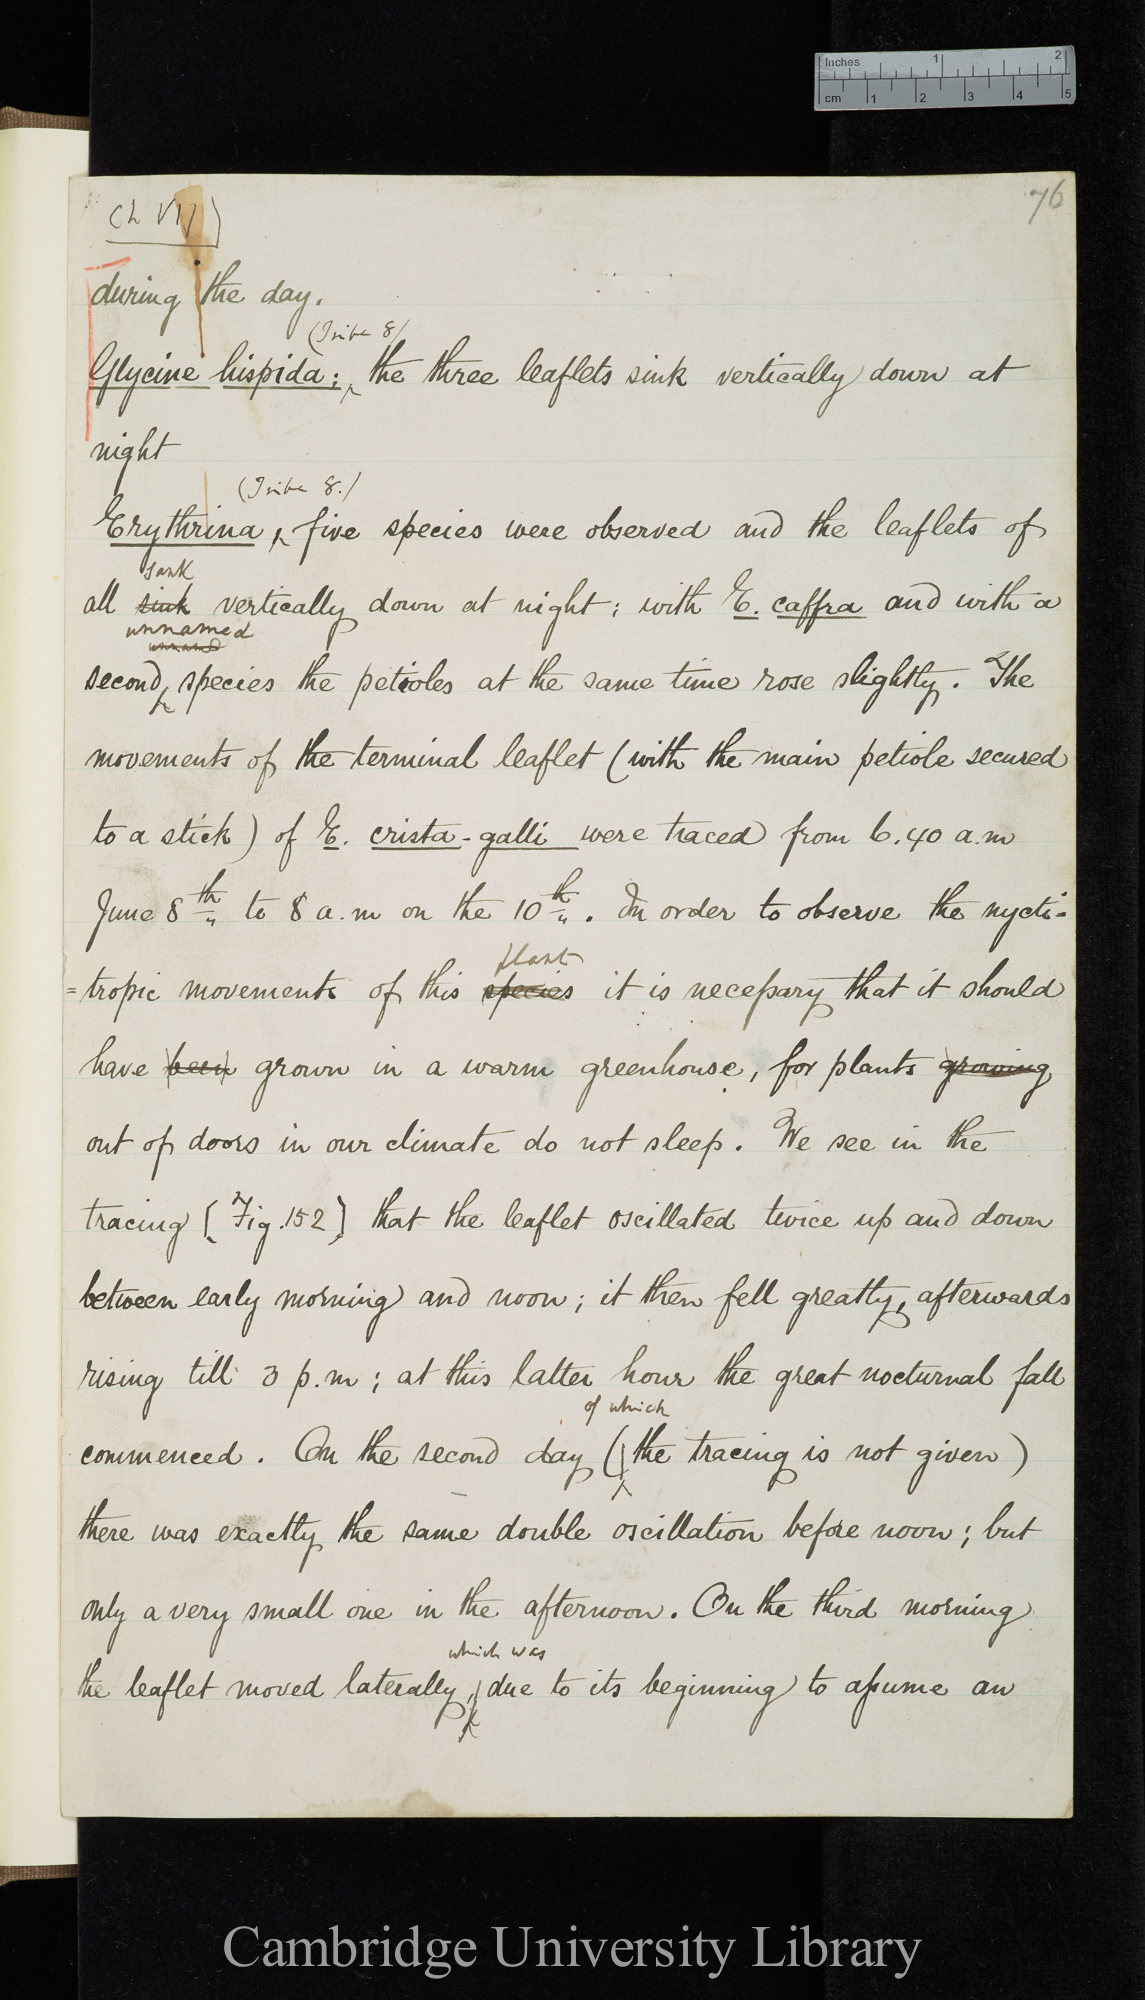 Inches 1 2
cm 1 2 3 4 5
76
(Ch VII)
during the day.
(Tribe 8)
Glycine hispida; the three leaflets sink vertically down at
night
(Tribe 8.)
Erythrina, five species were observed and the leaflets of
sank
all sink vertically down at night; with E. caffra and with a
unnamed
second, species the petioles at the same time rose slightly. The
movements of the terminal leaflet (with the main petiole secured
to a stick) of E. crista-galli were traced from 6.40 a.m
June 8th to 8 a.m on the 10th. In order to observe the nycti-
plant
=tropic movements of this species it is necessary that it should
have been grown in a warm greenhouse, for plants growing
out of doors in our climate do not sleep. We see in the
tracing (Fig. 152) that the leaflet oscillated twice up and down
between early morning and noon; it then fell greatly, afterwards
rising till 3 p.m; at this latter hour the great nocturnal fall
of which
commenced. On the second day (the tracing is not given)
there was exactly the same double oscillation before noon; but
only a very small one in the afternoon. On the third morning
which was
the leaflet moved laterally, due to its beginning to assume an
Cambridge University Library